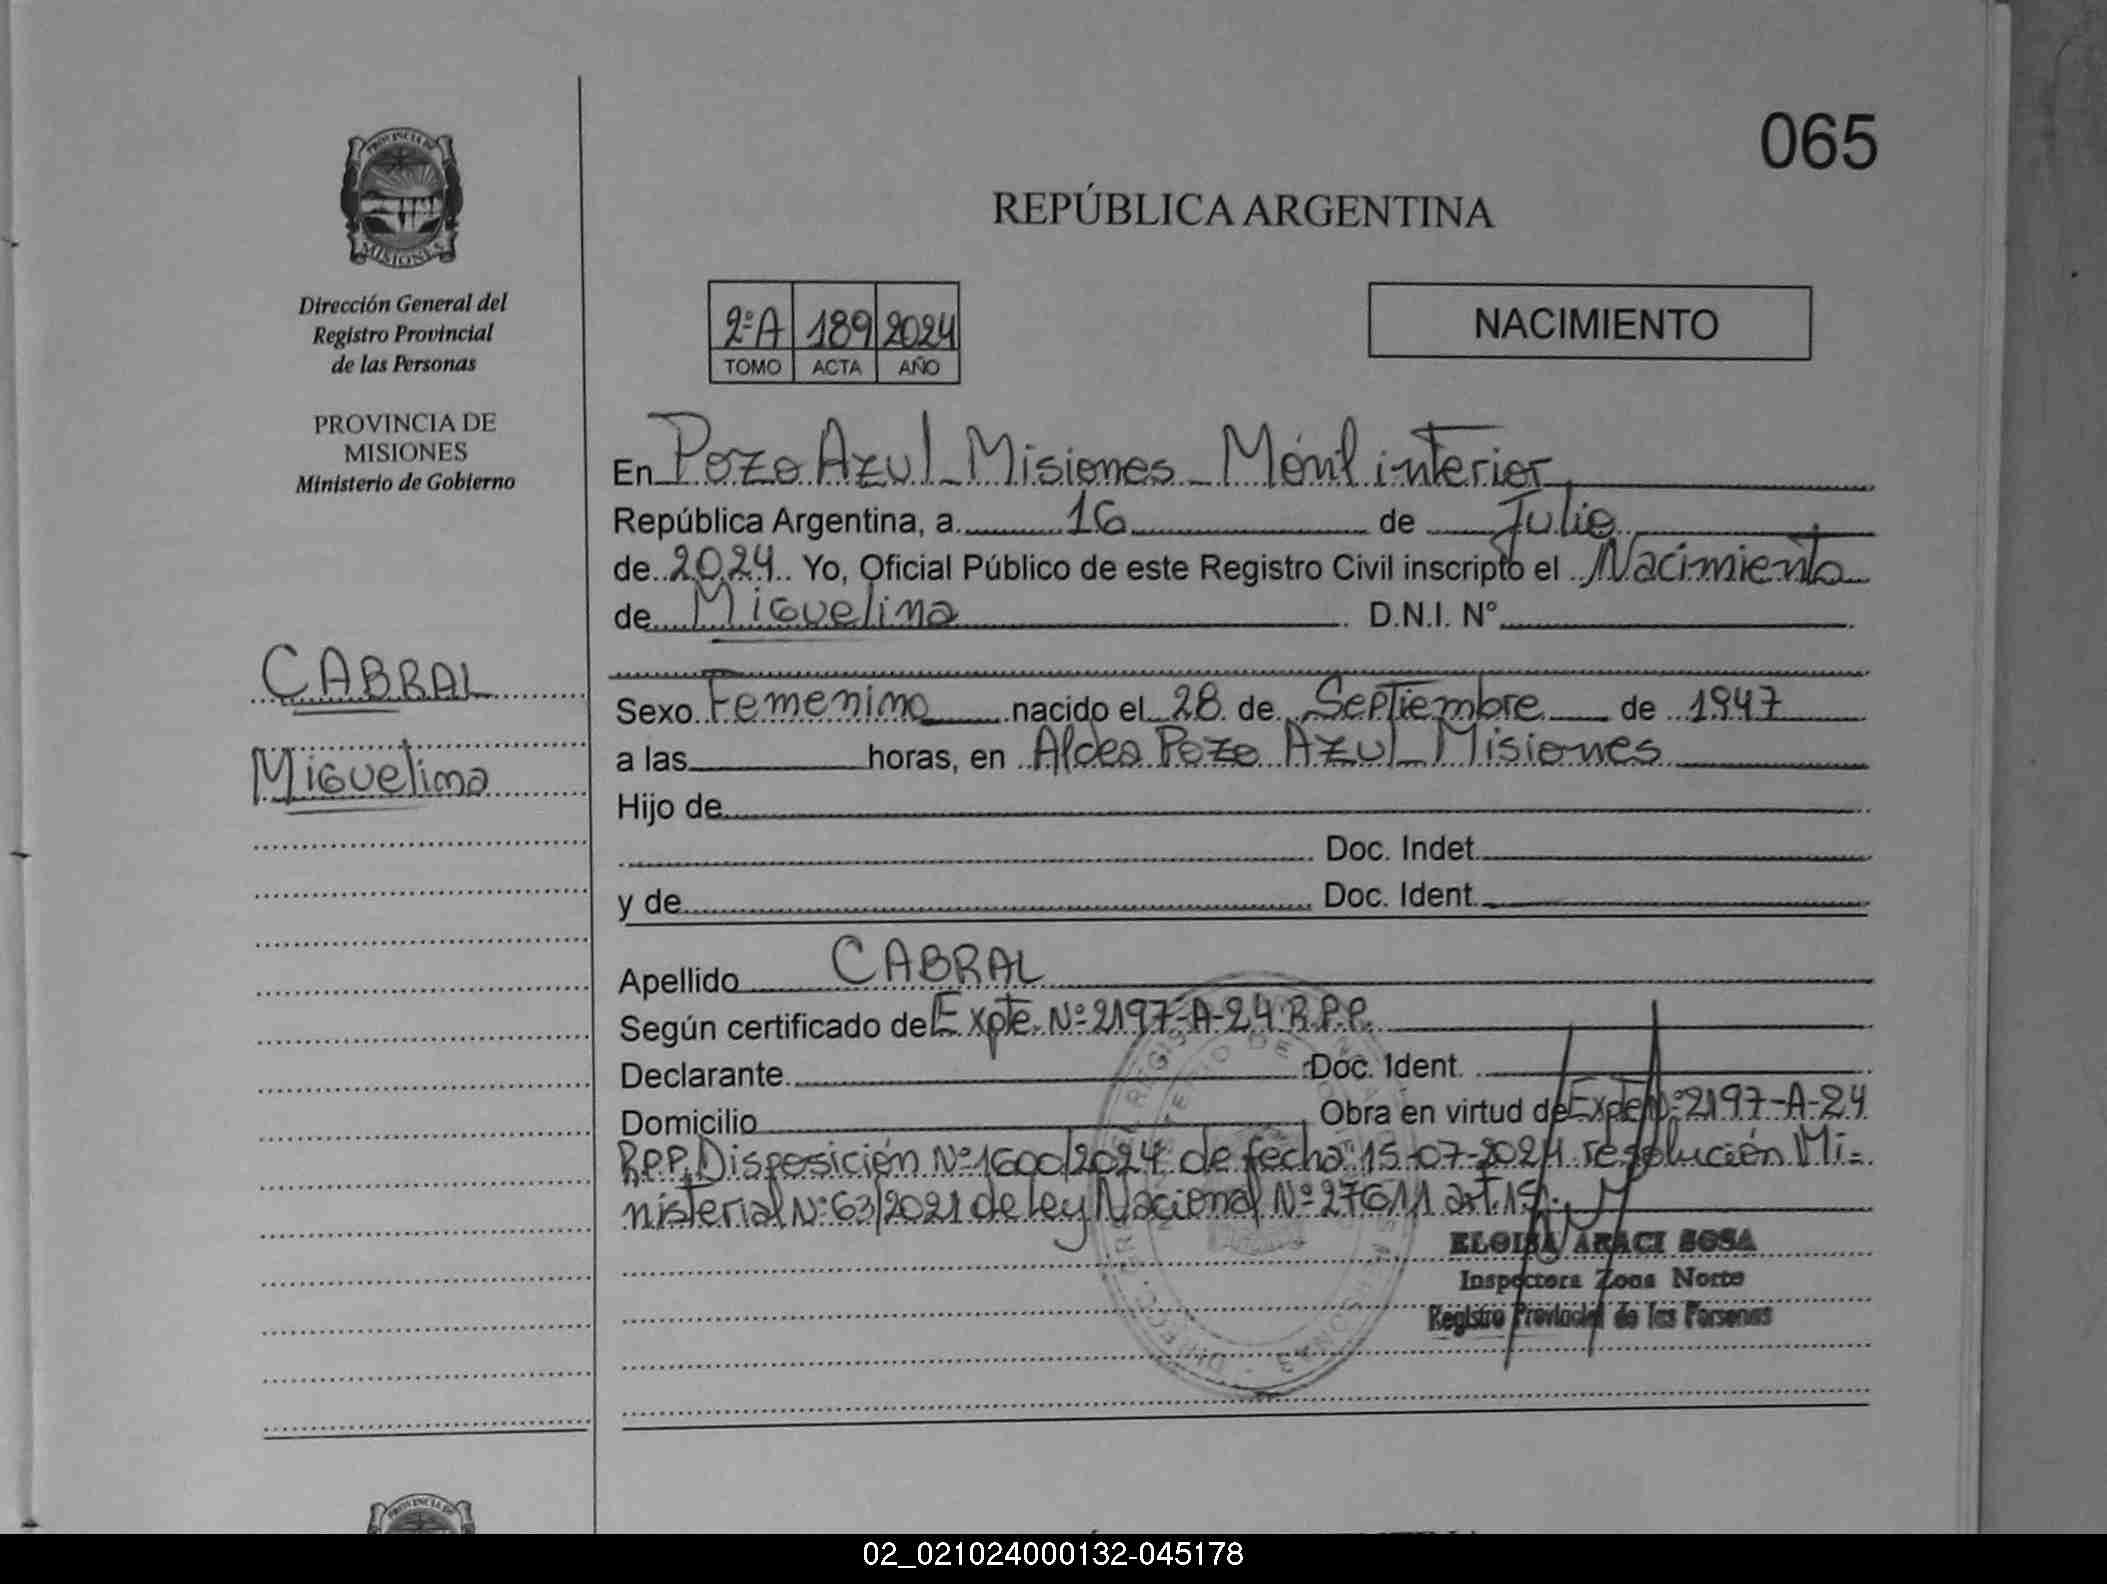 065
REPÚBLICA ARGENTINA
PROVINCIA DE
MISIONES
Dirección General del
Registro Provincial
de las Personas
PROVINCIA DE
MISIONES
Ministerio de Gobierno
CABRAL
Miguelina
2ºA 189 2024
TOMO ACTA AÑO
NACIMIENTO
En Pozo Azul - Misiones - Móvil interior
República Argentina, a 16 de Julio
de 2024. Yo, Oficial Público de este Registro Civil inscripto el Nacimiento
de Miguelina D.N.I. N°
Sexo Femenino nacido el 28 de Septiembre de 1947
a las horas, en Aldea Pozo Azul - Misiones
Hijo de
Doc. Indet.
y de Doc. Ident.
Apellido CABRAL
Según certificado de Expte. Nº 2197-A-24 R.P.P.
Declarante Doc. Ident.
Domicilio Obra en virtud de Expte Nº 2197-A-24
R.P.P. Disposición Nº 1600/2024 de fecha 15-07-2024 resolución Mi=
nisterial Nº 63/2021 de ley Nacional Nº 27611 art.
ELOISA ARACI SOSA
Inspectora Zona Norte
Registro Provincial de las Personas
02_021024000132-045178